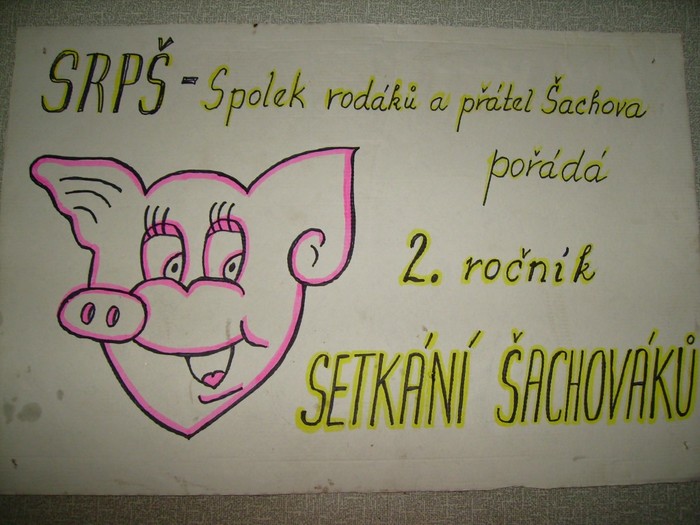 SRPŠ - Spolek rodáků a přátel Šachova
pořádá
2. ročník
SETKÁNÍ ŠACHOVÁKŮ